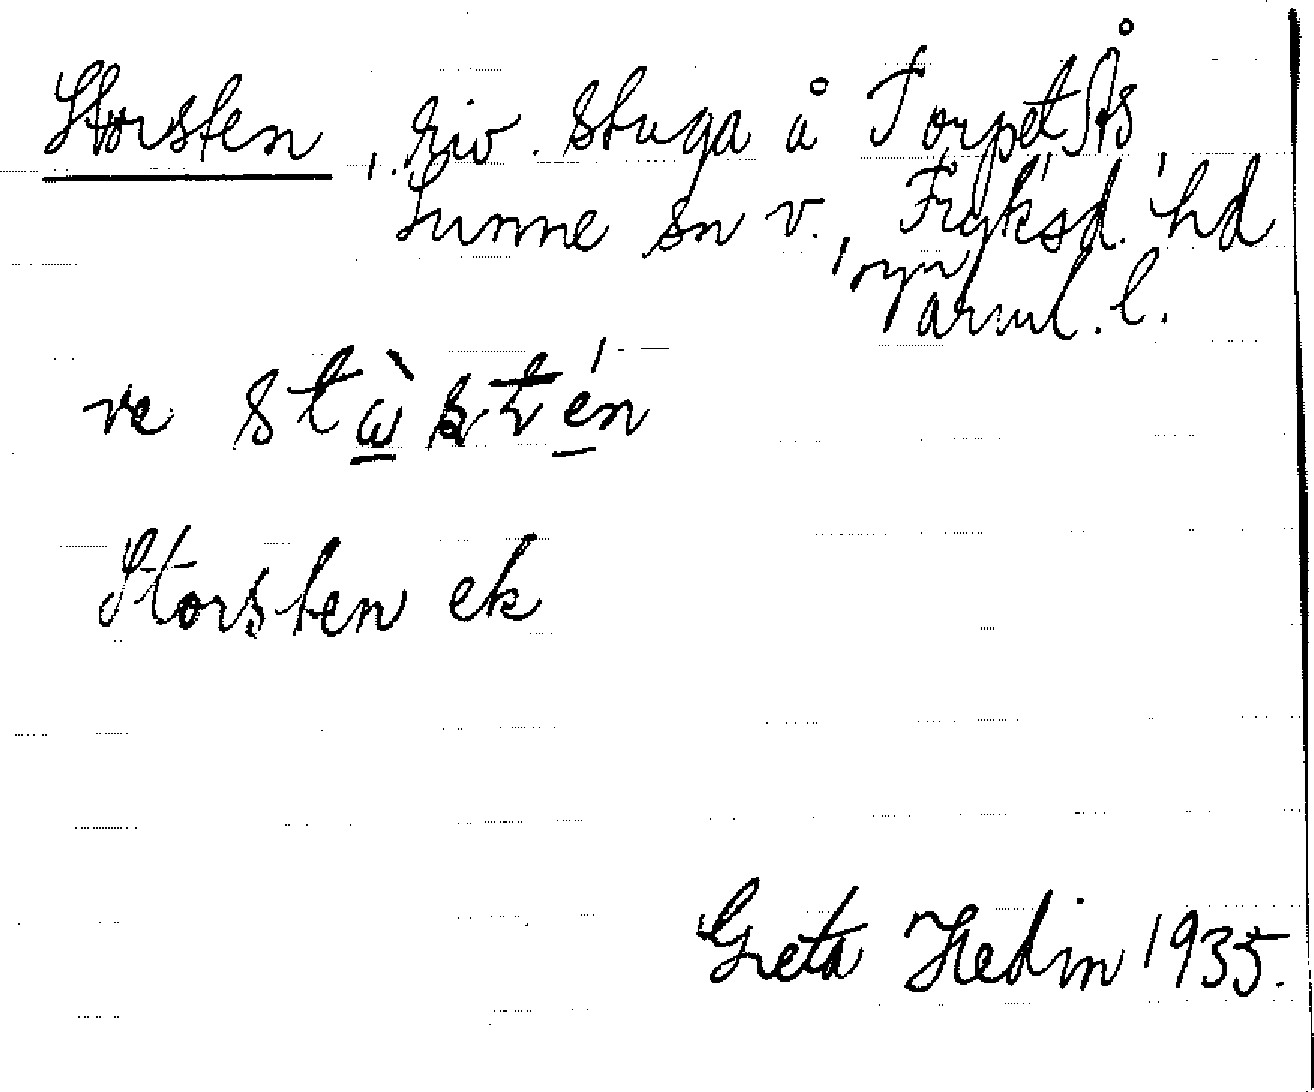 Storsten, riv. stuga å Torpet Ås,
Sunne sn v., Fryksd. hd
Värml. l.
Storsten ek
Greta Hedin 1935.